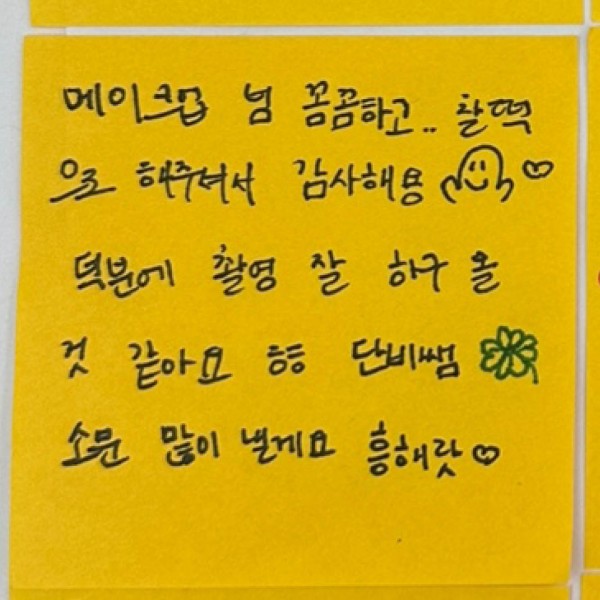 메이크업 넘 꼼꼼하고.. 찰떡
으로 해주셔서 감사해용 ♡
덕분에 촬영 잘 하구 올
것 같아요 ㅎㅎ 단비쌤
소문 많이 낼게요 흥해랏♡